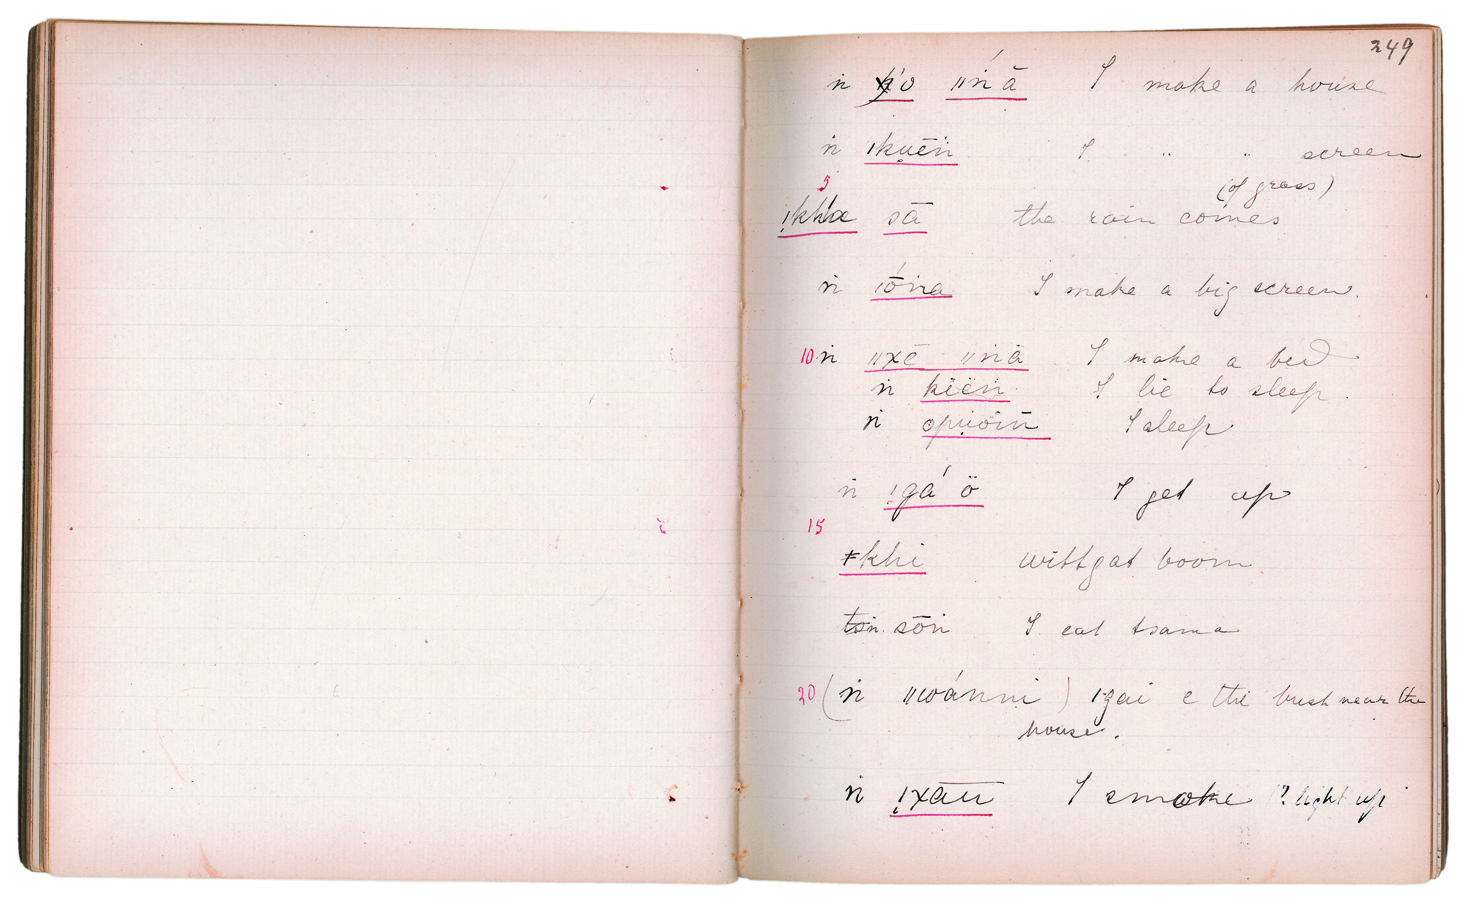 249
ṅ k'o ǁṅ́ā I make a house
ṅ ǀku̥ēṅ I " " screen
(of grass)
5
ǃkh'a sā the rain comes
ṅ ǀṓṅa I make a big screen.
10 ṅ ǁxē ǁṅā I make a bed
ṅ kïëṅ I lie to sleep.
ṅ opu̥oin I sleep
ṅ ǃgá ö I get up
15
ǂkhi wittgat boom
tsṅ. sōṅ I eat tsama
20 (ṅ ǁwánni) ǀgai e the bush near the
house.
ṅ ǃxāū I smoke ? light up